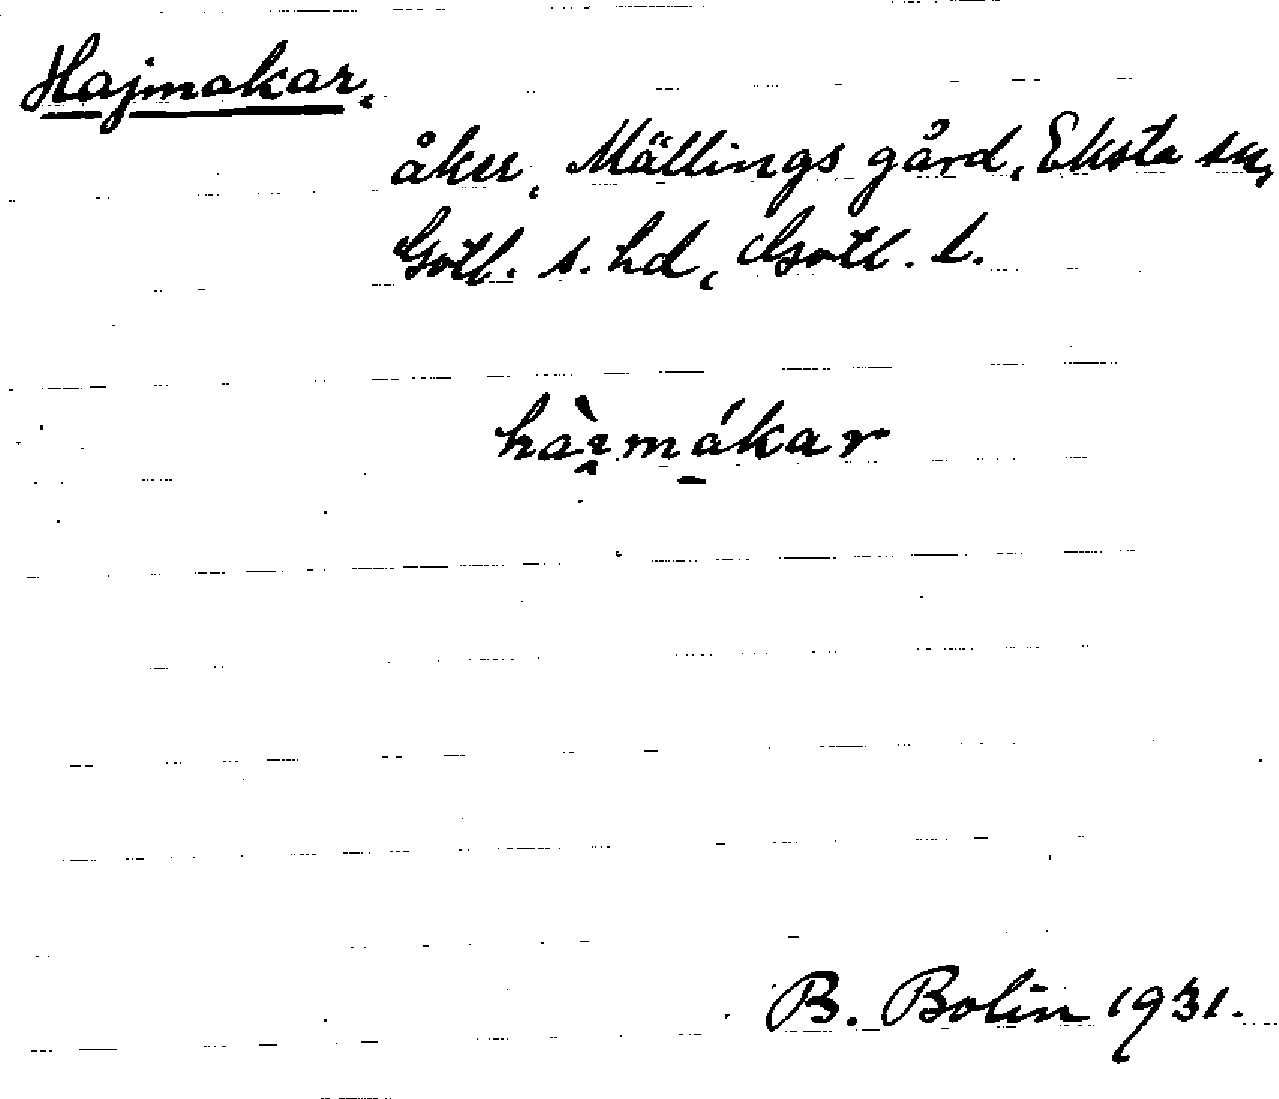 Hajmakar.
åker, Mällings gård, Eksta sn,
Gotl. s. hd, Gotl. l.
hàı̯mákar
B. Bolin 1931.